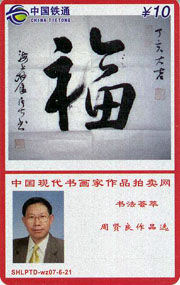 中国铁通
CHINA TIETONG
¥10
福
丁亥大吉
中国现代书画家作品拍卖网
书法荟萃
周贤良作品选
SHLPTD-wz07-6-21